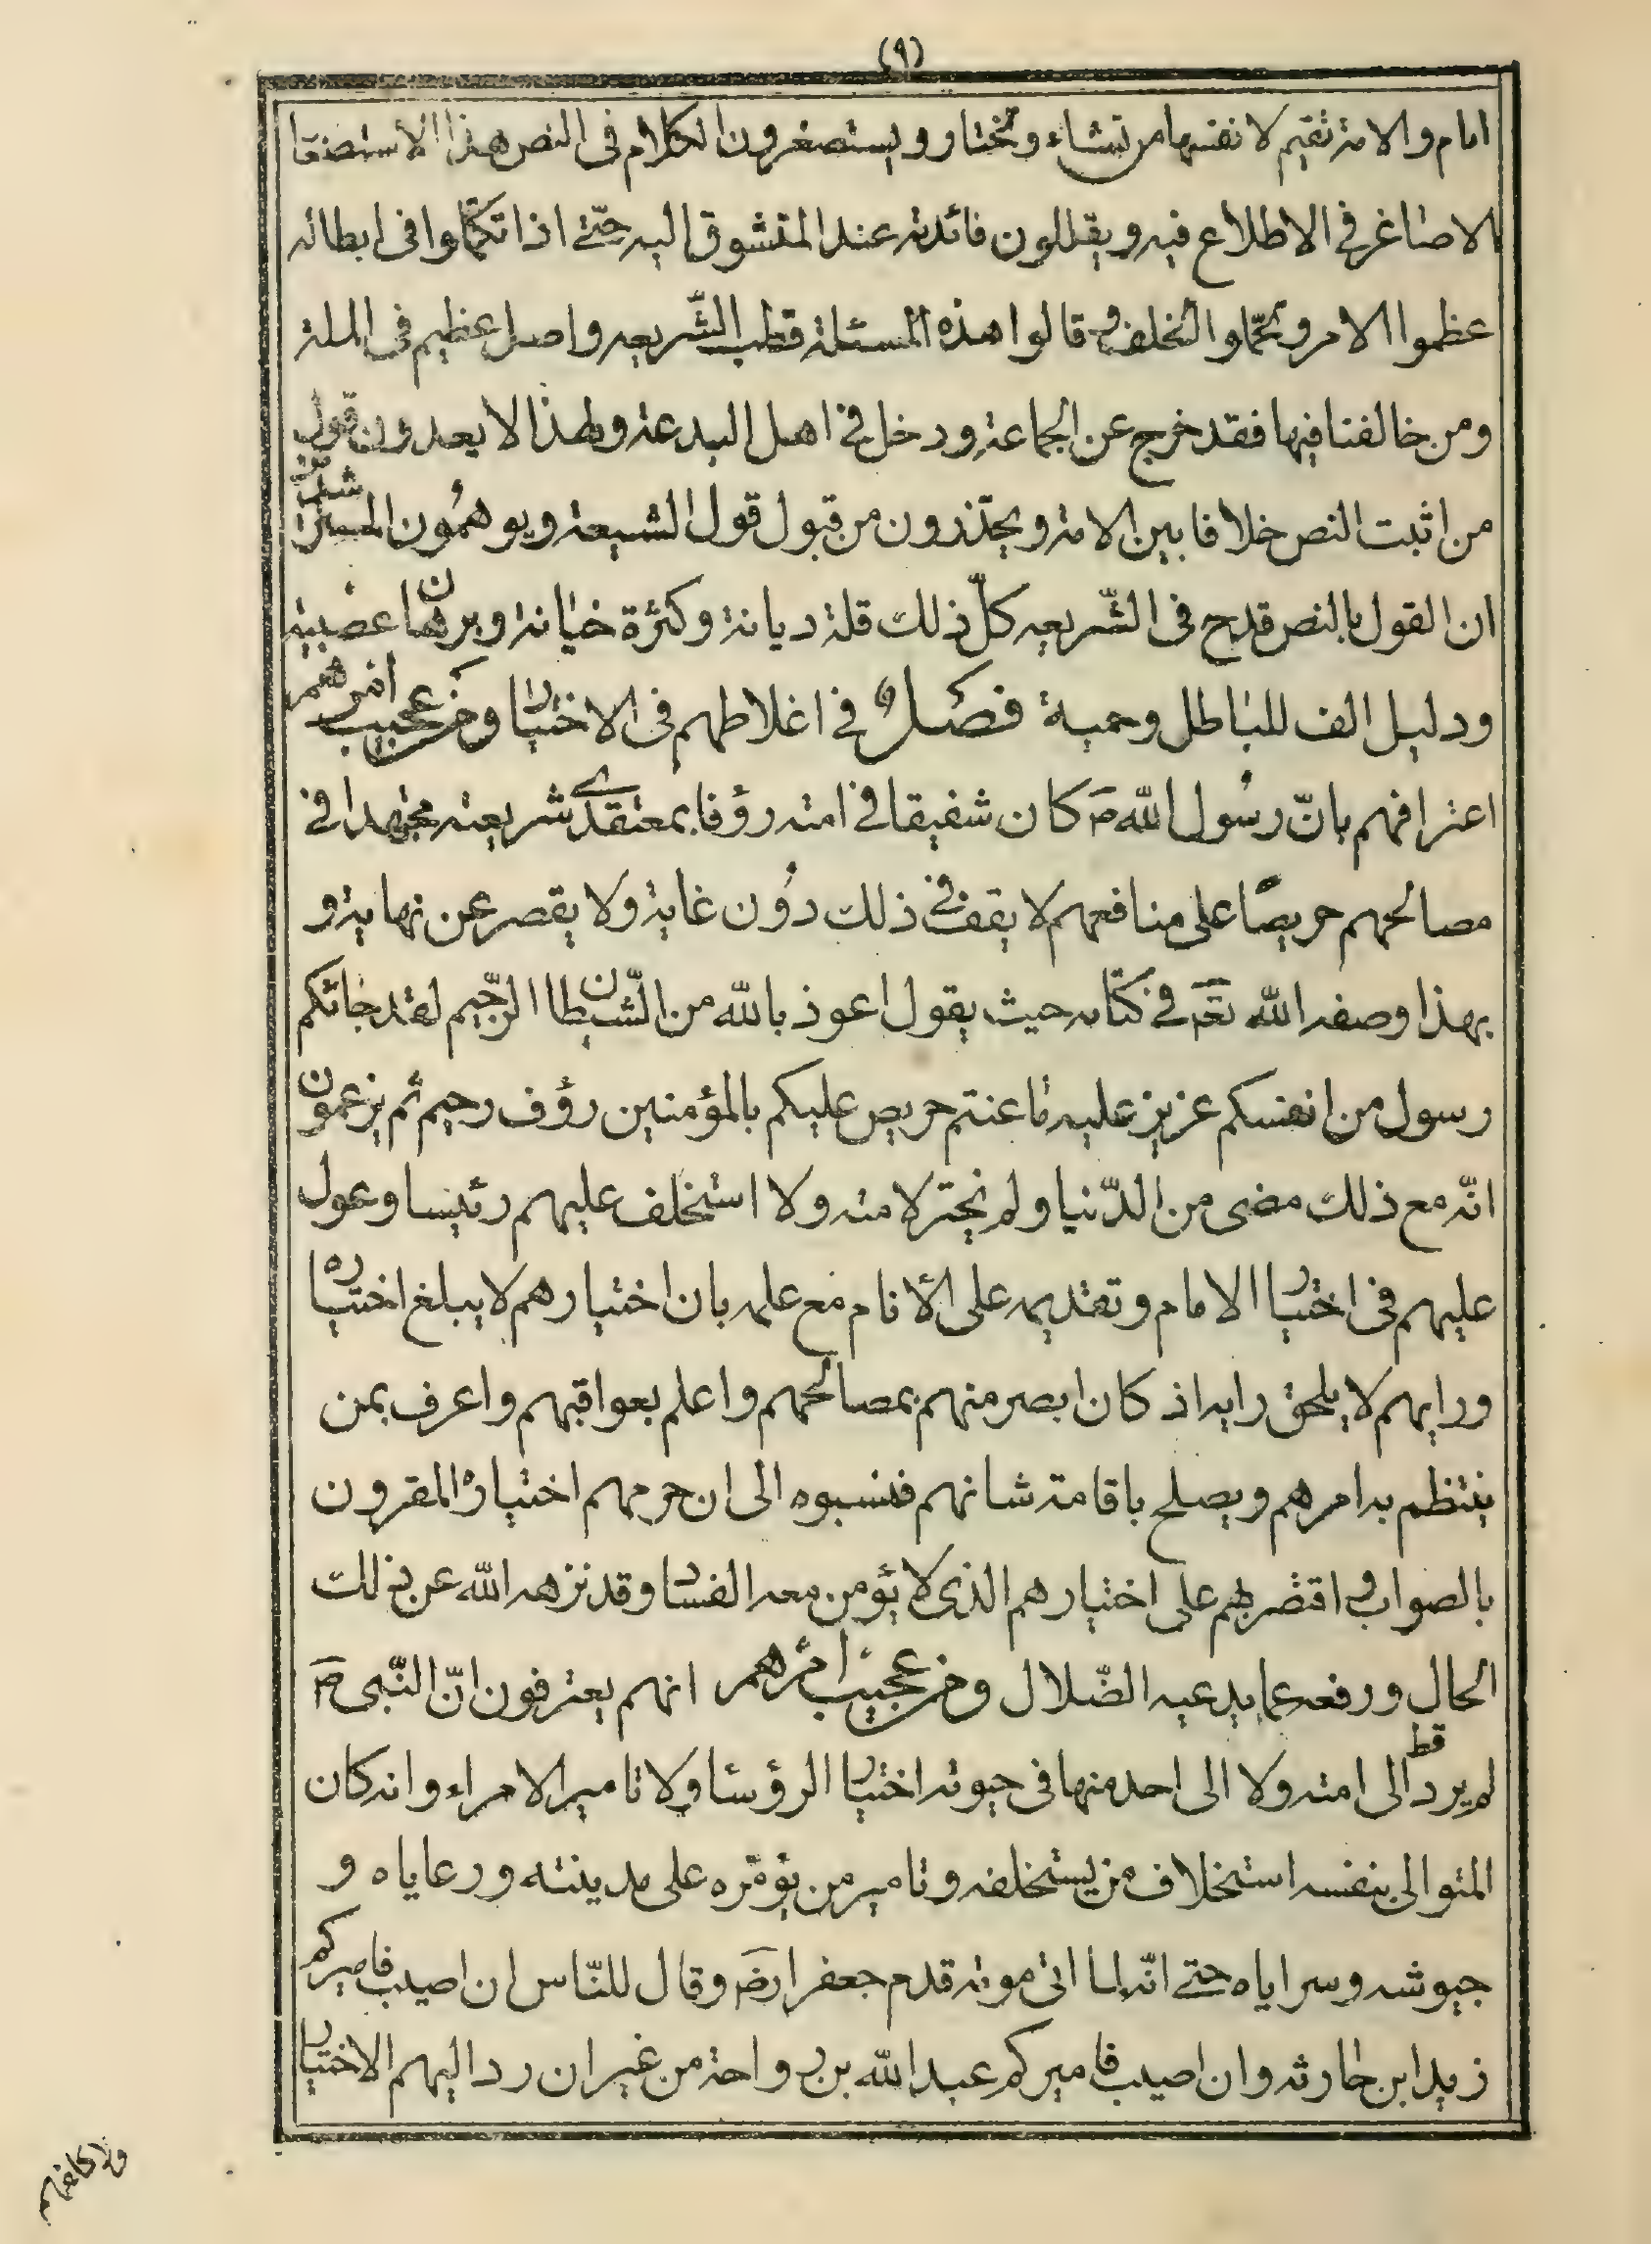 (٩)
امام والامة تقيم لانفسها من تشاء وتختار ويستصغرون الكلام فى النص هذا الاستصغا
الاصاغر فى الاطلاع فيه ويقللون فائدته عند المتشوق اليه حتّى اذا تكلّموا فى ابطاله
عظموا الامر وتحمّلوا قالوا هذه المسئلة قطب الشّريعه واصل عظيم فى الملة
ومن خالفنا فيها فقد خرج عن الجماعة ودخل فى اهل البدعة ولهذا لا يعدون قول
من اثبت النص خلافا بين الامة ويحذّرون من قبول قول الشيعة ويوهمُون المسترشد
ان القول بالنص قدح فى الشّريعه كلّ ذلك قلة ديانة وكثرة خيانة وبرهان عصبية
ودليل الف للباطل وحمية فصل فى اغلاطهم فى الاختيار ومن عجيب امرهم
اعترافهم بانّ رسُول الله ص كان شفيقا فى امته رؤفا بمعتقدى شريعته مجتهدا فى
مصالحهم حريصًا على منافعهم لا يقف فى ذلك دُون غاية ولا يقصر عن نهاية و
بهذا وصفه الله تعَ فى كتابه حيث يقول اعوذ بالله من الشّيطان الرّجيم لقد جائكم
رسول من انفسكم عزيز عليه ما عنتم حريص عليكم بالمؤمنين رؤف رحيم ثم يزعمون
انّه مع ذلك مضى من الدّنيا ولم يختر لامته ولا استخلف عليهم رئيسا وعول
عليهم فى اختيار الامام وتقديمه على الأنام مع علمه بان اختيارهم لا يبلغ اختياره
ورايهم لا يلحق رايه اذ كان ابصر منهم بمصالحهم واعلم بعواقبهم واعرف بمن
ينتظم به امرهم ويصلح باقامته شانهم فنسبوه الى ان حرمهم اختياره المقرون
بالصواب واقتصر بهم على اختيارهم الذى لا يؤمن معه الفساد وقد نزهه الله عن ذلك
الحال ورفعه عما يدعيه الضّلال ومن عجيب امرهم انهم يعترفون انّ النّبى ص
لم يرد قط الى امته ولا الى احد منها فى حيوته اختيار الرؤسا ولا تامير الامراء وانه كان
المتوالى بنفسه استخلاف من يستخلفه وتامير من يؤمّره على مدينته ورعاياه و
جيوشه وسراياه حتى انّه لما اتى موته قدم جعفرا رضَ وقال للنّاس ان اصيب فاميركم
زيد ابن حارثه وان اصيب فاميركم عبد الله بن رواحة من غير ان رد اليهم الاختيار
ولا كلفهم